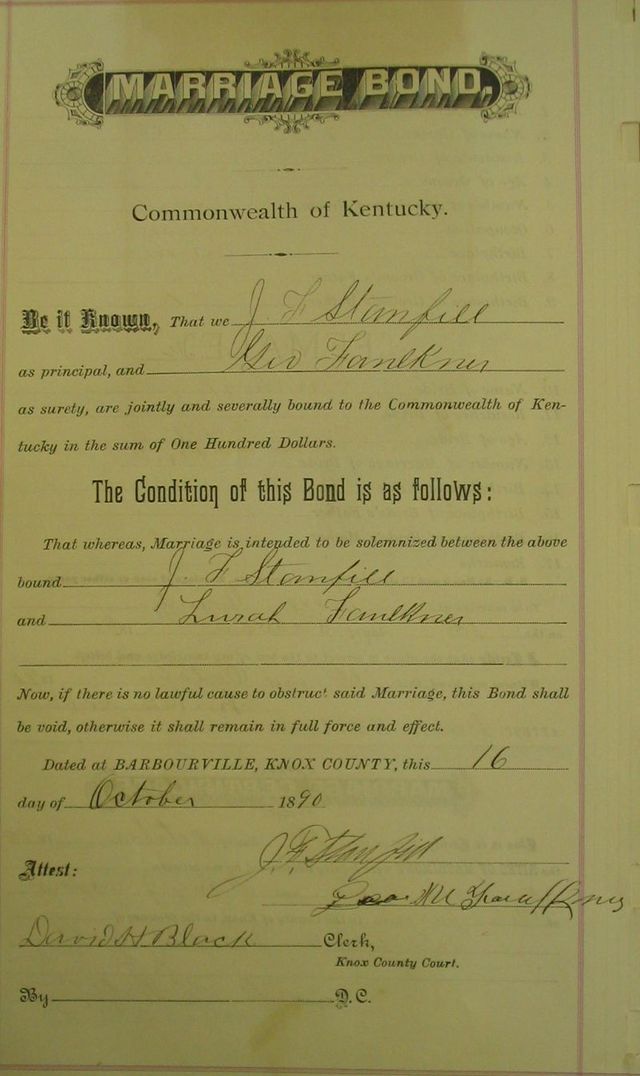 MARRIAGE BOND.
Commonwealth of Kentucky.
Be it Known, That we J F Stanfill
as principal, and Geo Faulkner
as surety, are jointly and severally bound to the Commonwealth of Ken-
tucky in the sum of One Hundred Dollars.
The Condition of this Bond is as follows:
That whereas, Marriage is intended to be solemnized between the above
bound J. F Stanfill
and Lurah Faulkner
Now, if there is no lawful cause to obstruct said Marriage, this Bond shall
be void, otherwise it shall remain in full force and effect.
Dated at BARBOURVILLE, KNOX COUNTY, this 16
day of October 1890
J. F. Stanfill
Attest:
David H Black Clerk,
Knox County Court.
By D.C.